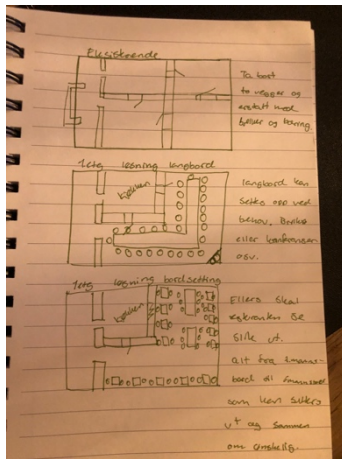 Eksisterende
Ta bort
to vegger og
erstatt med
1 etg løsning langbord
kjøkken
langbord kan
settes opp ved
behov.
eller konferanser
osv.
1 etg løsning bordsetting
kjøkken
Ellers skal
se
slik ut.
alt fra
bord til
som kan settes
ut og sammen
om ønskelig.